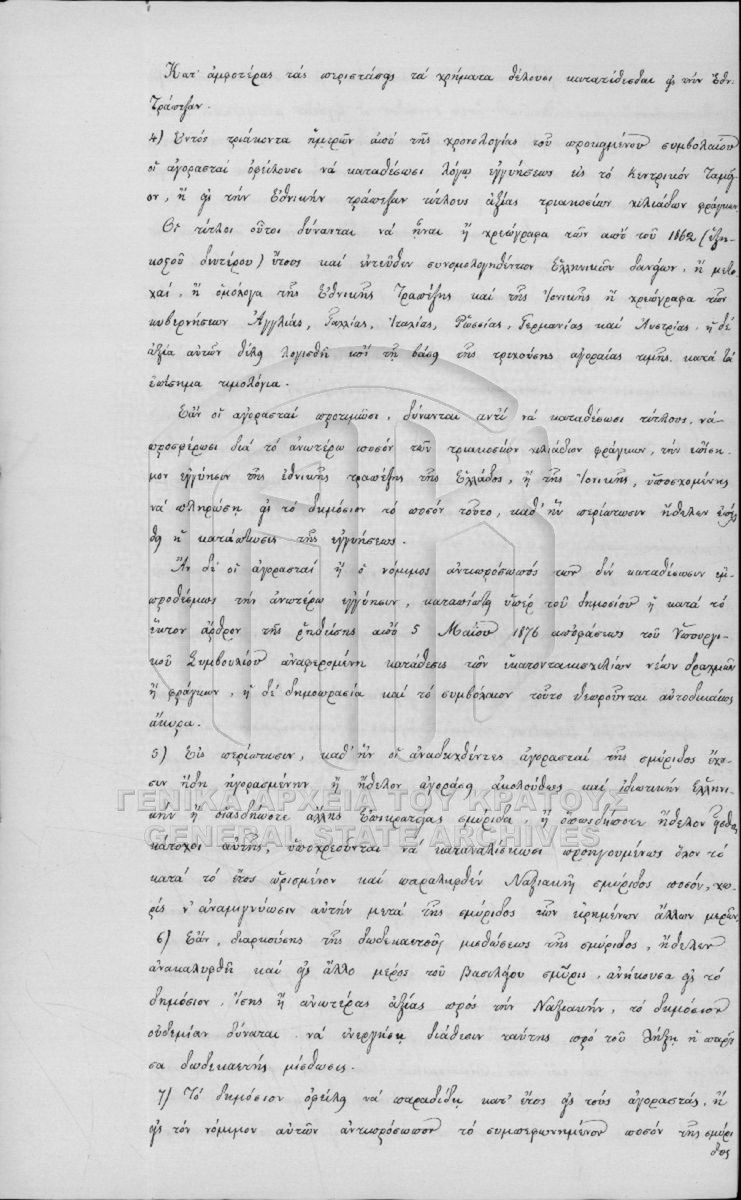 Κατ' ἀμφοτέρας τάς περιστάσεις τά χρήματα θέλουσι κατατίθεσθαι εἰς τήν Ἐθν.
Τράπεζαν.
4) Ἐντός τριάκοντα ἡμερῶν ἀπό τῆς χρονολογίας τοῦ προκειμένου συμβολαίου
οἱ ἀγορασταί ὀφείλουσι νά καταθέσωσι λόγῳ ἐγγυήσεως εἰς τό Κεντρικόν Ταμεῖ
ον, ἤ εἰς τήν Ἐθνικήν τράπεζαν τίτλους ἀξίας τριακοσίων χιλιάδων φράγκων.
Οἱ τίτλοι οὗτοι δύνανται νά ᾖναι ἤ χρεώγραφα τῶν ἀπό τοῦ 1862 (ἑξη-
κοστοῦ δευτέρου) ἔτους καί ἐντεῦθεν συνομολογηθέντων Ἑλληνικῶν δανείων, ἤ μετο
χαί, ἤ ὁμόλογα τῆς Ἐθνικῆς Τραπέζης καί τῆς Ἰονικῆς ἤ χρεώγραφα τῶν
κυβερνήσεων Ἀγγλίας, Γαλλίας, Ἰταλίας, Ρωσσίας, Γερμανίας καί Αυστρίας, ἡ δέ
ἀξία αὐτῶν θέλει λογισθῆ ἐπί τῇ βάσει τῆς τρεχούσης ἀγοραίας τιμῆς κατά τά
ἐπίσημα τιμολόγια.
Ἐάν οἱ ἀγορασταί προτιμῶσι, δύνανται ἀντί νά καταθέσωσι τίτλους, νά
προσφέρωσι διά τό ἀνωτέρω ποσόν τῶν τριακοσίων χιλιάδων φράγκων, τήν ἐπίση
μον ἐγγύησιν τῆς ἐθνικῆς τραπέζης τῆς Ἑλλάδος, ἤ τῆς Ἰονικῆς, ὑποσχομένης
νά πληρώσῃ εἰς τό δημόσιον τό ποσόν τοῦτο, καθ' ἥν περίπτωσιν ἤθελεν ἐπέλ
θῃ ἡ κατάπτωσις τῆς ἐγγυήσεως.
Ἄν δέ οἱ ἀγορασταί ἤ ὁ νόμιμος ἀντιπρόσωπός των δέν καταθέσωσιν ἐμ
προθέσμως τήν ἀνωτέρω ἐγγύησιν, καταπίπτει ὑπέρ τοῦ δημοσίου ἡ κατά τό
ἕκτον ἄρθρον τῆς ῥηθείσης ἀπό 5 Μαΐου 1876 ἀποφάσεως τοῦ Ὑπουργι-
κοῦ Συμβουλίου ἀναφερομένη κατάθεσις τῶν ἑκατοντακισχιλίων νέων δραχμῶν
ἤ φράγκων, ἡ δέ δημοπρασία καί τό συμβόλαιον τοῦτο θεωροῦνται αὐτοδικαίως
ἄκυρα.
5) Εἰς περίπτωσιν, καθ' ἥν οἱ ἀναδειχθέντες ἀγορασταί τῆς σμύριδος ἔχο-
σιν ἤδη ἠγορασμένην ἤ ἤθελον ἀγοράσῃ ἀκολούθως καί ἰδιωτικήν Ἑλληνι-
κήν ἤ οἱασδήποτε ἄλλης Ἐπικρατείας σμύριδα, ἤ ὁπωσδήποτε ἤθελον εἶσθαι
κάτοχοι αὐτῆς, ὑποχρεοῦνται νά καταναλίσκωσι προηγουμένως ὅλον τό
κατά τό ἔτος ὡρισμένον καί παραληφθέν Ναξιακῆς σμύριδος ποσόν, χω-
ρίς ν' ἀναμιγνύωσιν αὐτήν μετά τῆς σμύριδος τῶν εἰρημένων ἄλλων μερῶν.
6) Ἐάν, διαρκούσης τῆς δωδεκαετοῦς μισθώσεως τῆς σμύριδος, ἤθελεν
ἀνακαλυφθῆ καί εἰς ἄλλο μέρος τοῦ Βασιλείου σμύρις, ἀνήκουσα εἰς τό
δημόσιον, ἴσης ἤ ἀνωτέρας ἀξίας πρός τήν Ναξιακήν, τό δημόσιον
οὐδεμίαν δύναται νά ἐνεργήσῃ διάθεσιν ταύτης πρό τοῦ λήξῃ ἡ παροῦ
σα δωδεκαετής μίσθωσις.
7) Τό δημόσιον ὀφείλει νά παραδίδῃ κατ' ἔτος εἰς τούς ἀγοραστάς, ἤ
εἰς τόν νόμιμον αὐτῶν ἀντιπρόσωπον τό συμπεφωνημένον ποσόν τῆς σμύρι
δος
ΓΕΝΙΚΑ ΑΡΧΕΙΑ ΤΟΥ ΚΡΑΤΟΥΣ
GENERAL STATE ARCHIVES